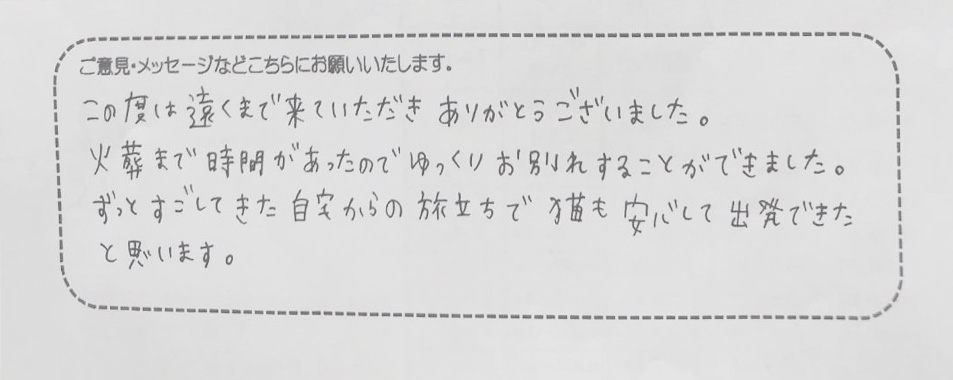 ご意見・メッセージなどこちらにお願いいたします。
この度は遠くまで来ていただき ありがとうございました。
火葬まで時間があったので ゆっくり お別れすることができました。
ずっと すごしてきた 自宅からの 旅立ちで 猫も 安心して 出発できた
と思います。